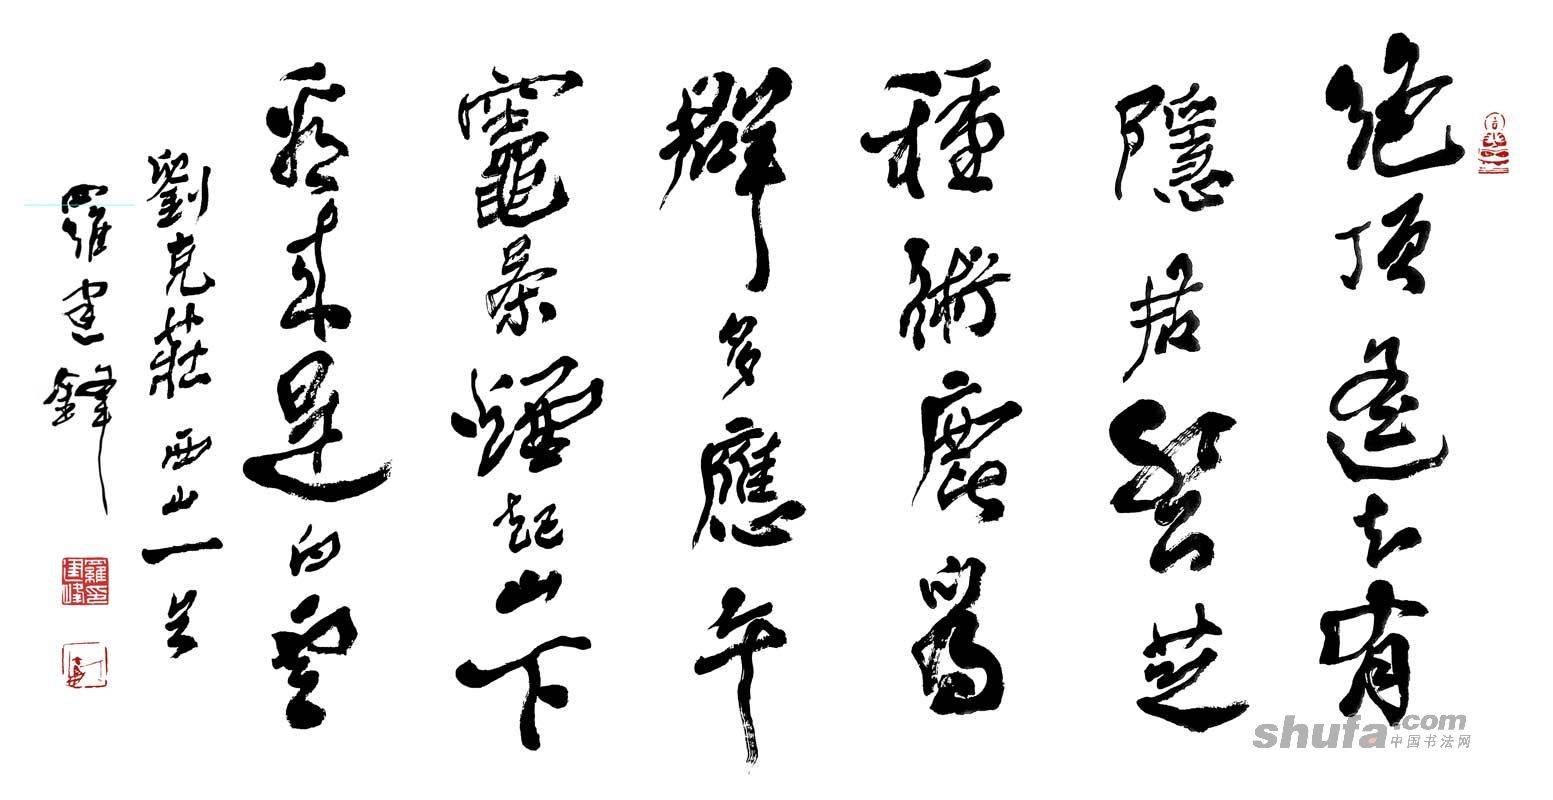 絕頂遙知有
隱君餐芝
種術麂爲
群多應午
竈茶煙起山下
看來是白雲
劉克莊 西山一首
羅建鋒
shufa.com
中国书法网